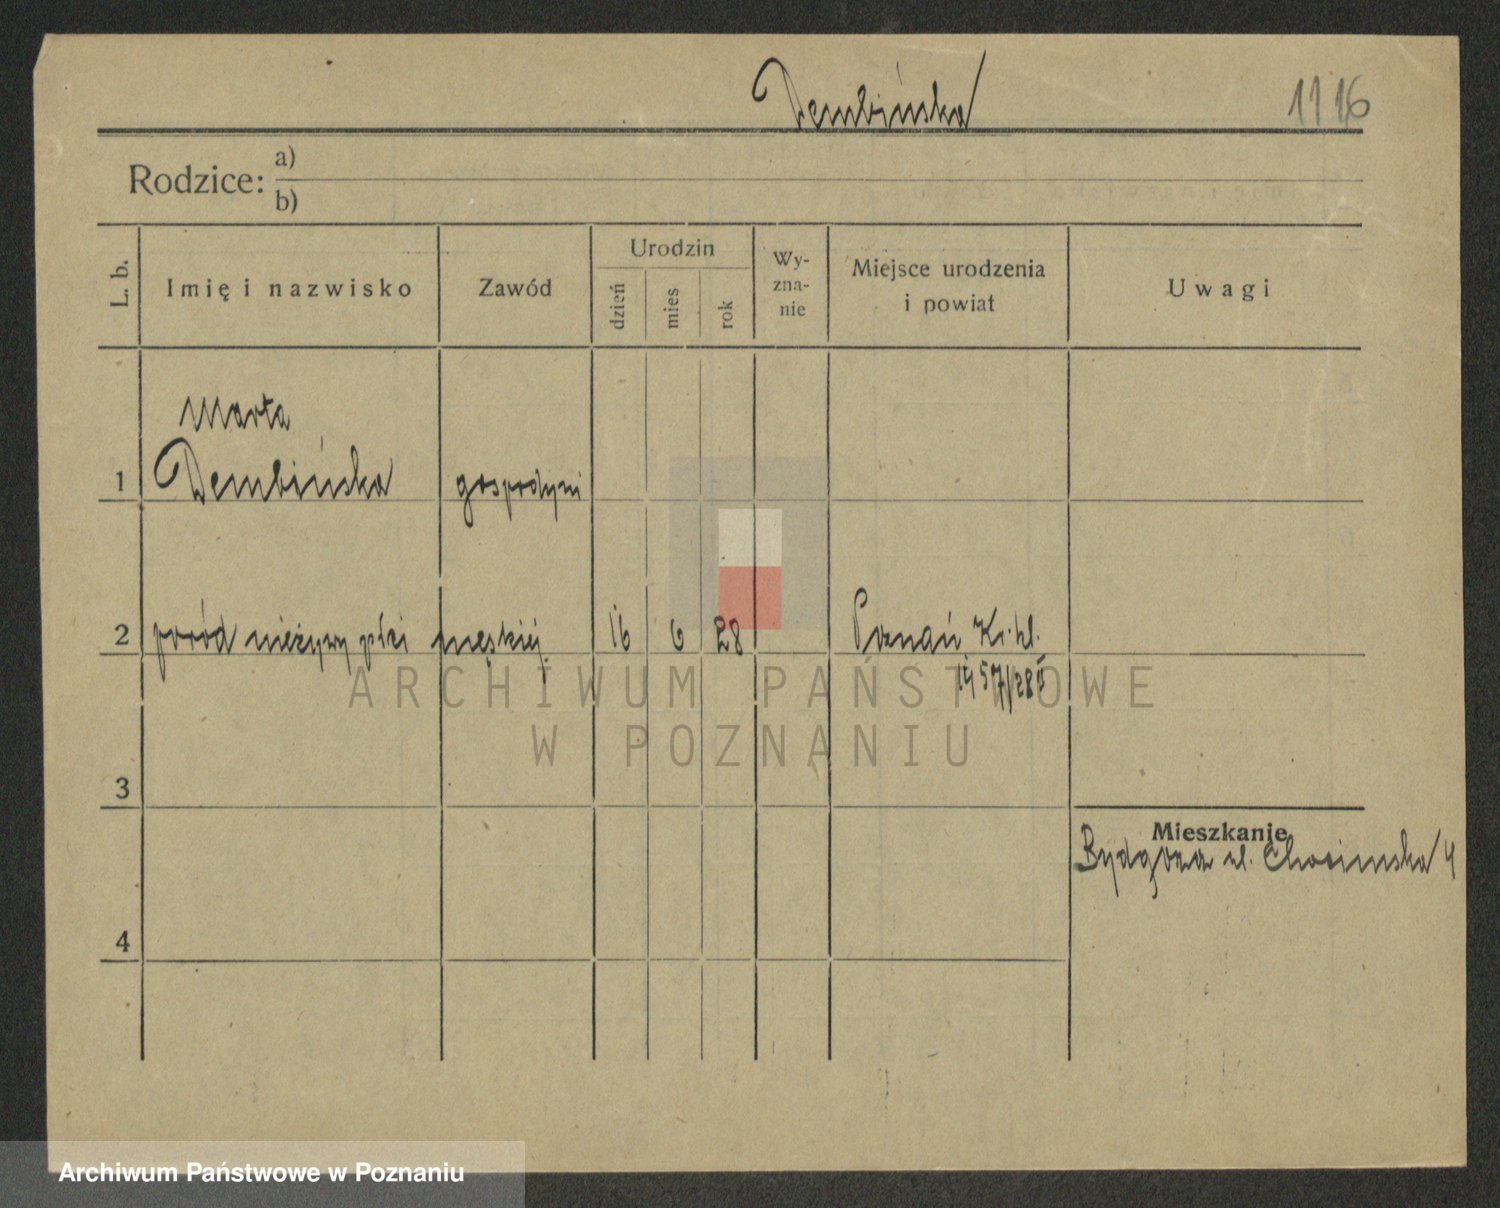 Dembińska
1116
Rodzice: a)
b)
L. b.
Imię i nazwisko
Zawód
Urodzin
dzień
mies
rok
Wy-
zna-
nie
Miejsce urodzenia
i powiat
Uwagi
Marta
1 Dembińska gospodyni
2 poród nieżywy płci męskiej 16 6 28 Poznań
ARCHIWUM PAŃSTWOWE
W POZNANIU
3
Mieszkanie
ul. Chocimska 4
4
Archiwum Państwowe w Poznaniu